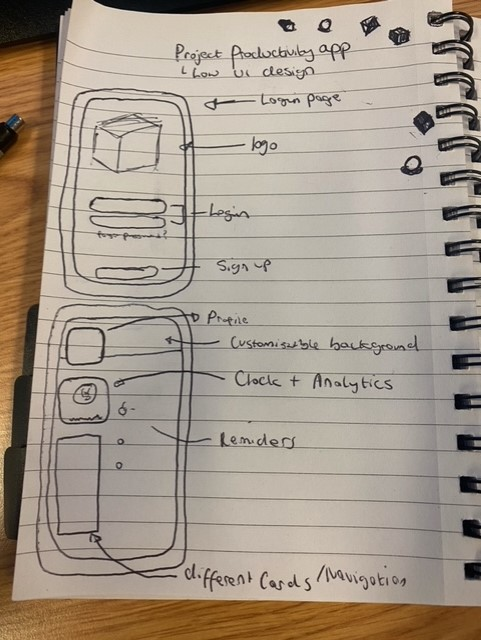 Project Productivity app
Low UI design
Login page
logo
Login
Sign up
Profile
Customisable background
Clock + Analytics
Remiders
different Cards/Navigation